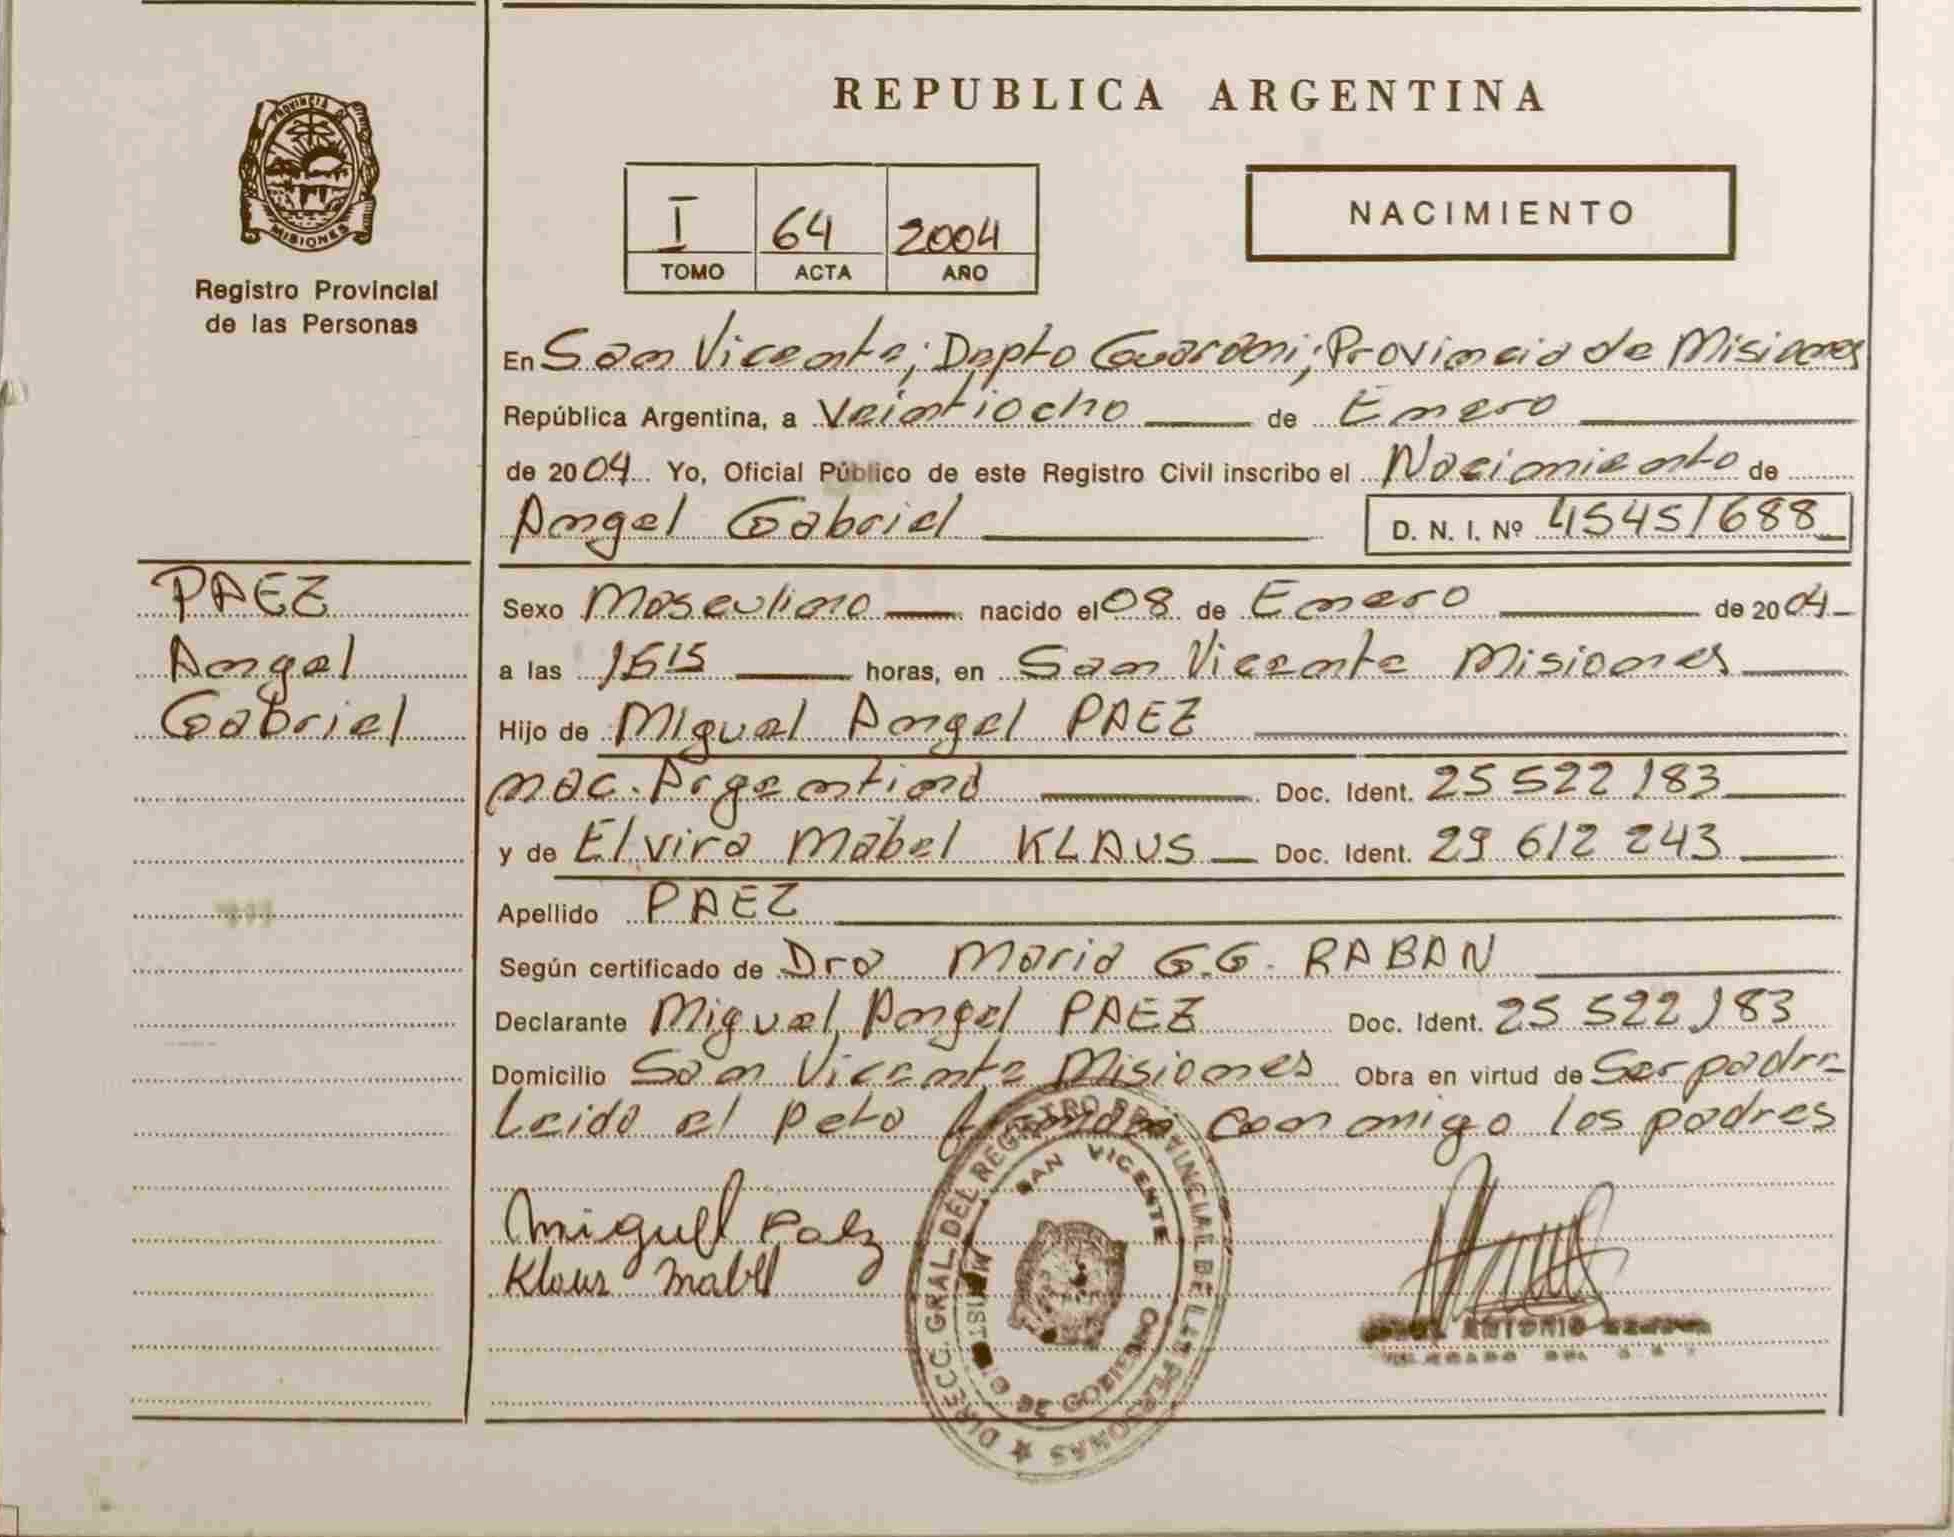 REPUBLICA ARGENTINA
PROVINCIA DE
MISIONES
Registro Provincial
de las Personas
I 64 2004
TOMO ACTA AÑO
NACIMIENTO
En San Vicente; Depto Guarani; Provincia de Misiones
República Argentina, a Veintiocho de Enero
de 2004 Yo, Oficial Público de este Registro Civil inscribo el Nacimiento de
Angel Gabriel D. N. I. Nº 45451688
PAEZ
Angel
Gabriel
Sexo Masculino nacido el 08 de Enero de 2004
a las 1615 horas, en San Vicente Misiones
Hijo de Miguel Angel PAEZ
nac. Argentina Doc. Ident. 25 522 183
y de Elvira Mabel KLAUS Doc. Ident. 29 612 243
Apellido PAEZ
Según certificado de Dra Maria G.G. RABAN
Declarante Miguel Angel PAEZ Doc. Ident. 25 522 183
Domicilio San Vicente Misiones Obra en virtud de Ser padre
Leido el Acta conmigo los padres
Miguel Paez
Klaus Mabel
DIRECC. GRAL. DEL REGISTRO PROVINCIAL DE LAS PERSONAS
SAN VICENTE
MINIST DE GOBIERNO
ANTONIO